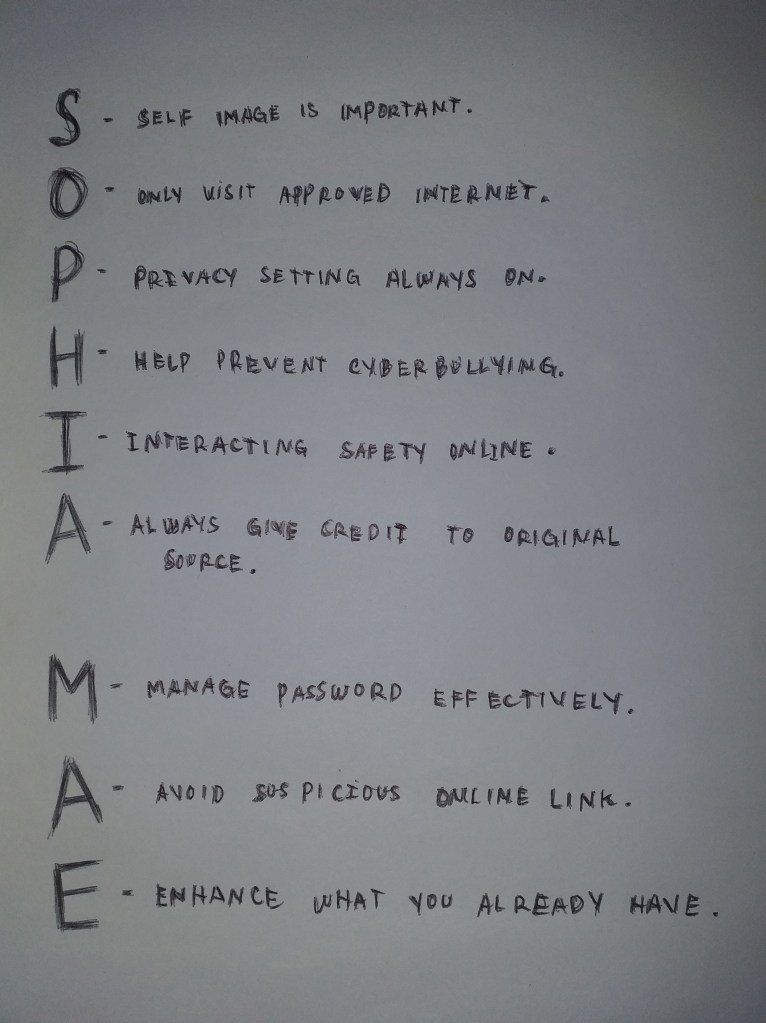 S - SELF IMAGE IS IMPORTANT.
O - ONLY VISIT APPROVED INTERNET.
P - PRIVACY SETTING ALWAYS ON.
H - HELP PREVENT CYBERBULLYING.
I - INTERACTING SAFETY ONLINE.
A - ALWAYS GIVE CREDIT TO ORIGINAL
SOURCE.
M - MANAGE PASSWORD EFFECTIVELY.
A - AVOID SUSPICIOUS ONLINE LINK.
E - ENHANCE WHAT YOU ALREADY HAVE.